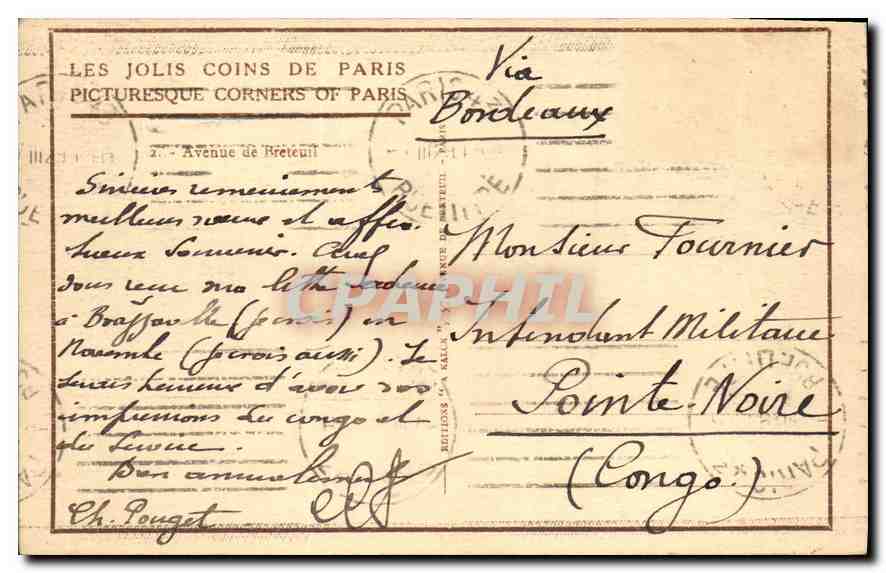 LES JOLIS COINS DE PARIS
PICTURESQUE CORNERS OF PARIS
2. - Avenue de Breteuil
Sincères remerciements
meilleurs vœux et affec-
tueux souvenir. Avez
vous reçu ma lettre adressée
à Brazzaville (je crois) en
Novembre (je crois aussi). Je
serais heureux d'avoir vos
impressions du Congo et
du Service.
Bien amicalement
Ch. Pouget
EDITIONS "KALCK" AVENUE DE BRETEUIL PARIS
Via
Bordeaux
Monsieur Fournier
Intendant Militaire
Pointe-Noire
(Congo.)
PARIS XV
CPAPHIL